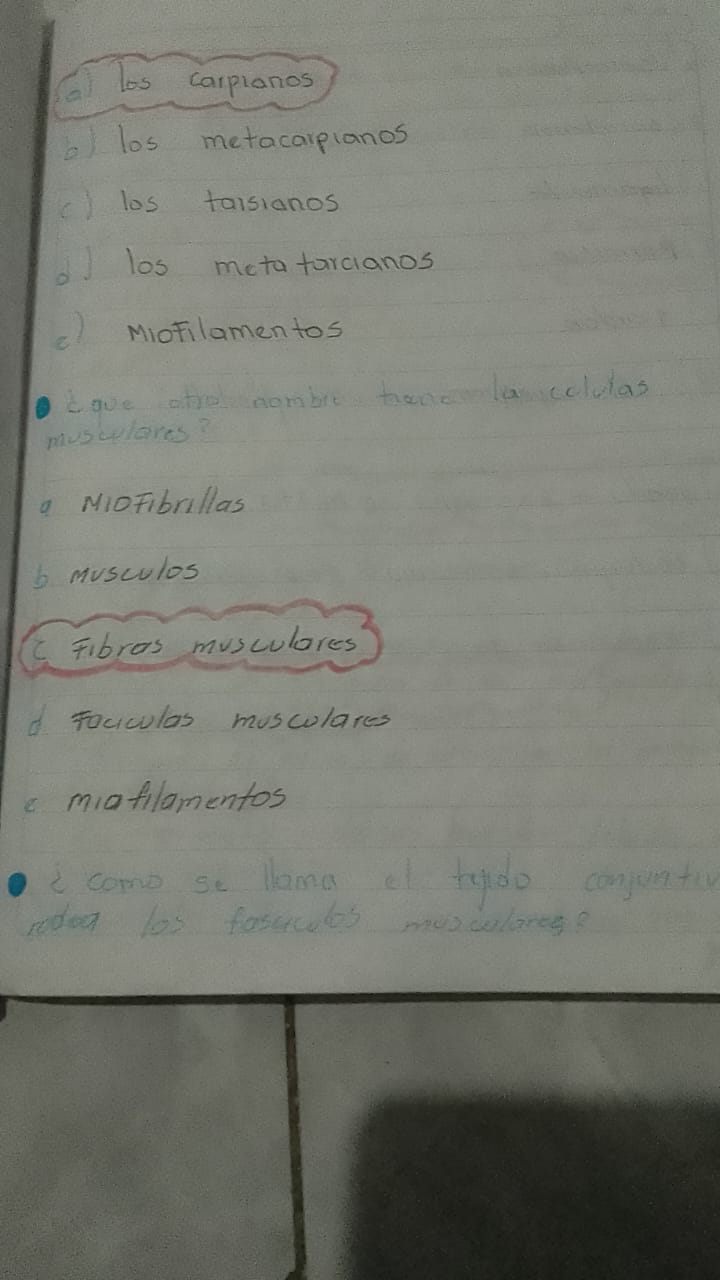 a) los carpianos
b) los metacarpianos
c) los tarsianos
d) los metatarcianos
e) MioFilamentos
¿que otro nombre tiene la celulas
musculares?
a MioFibrillas
b musculos
c Fibras musculares
d Faciculas musculares
e miofilamentos
¿como se llama el tejido conjuntiv
rodea los fasciculos musculares?